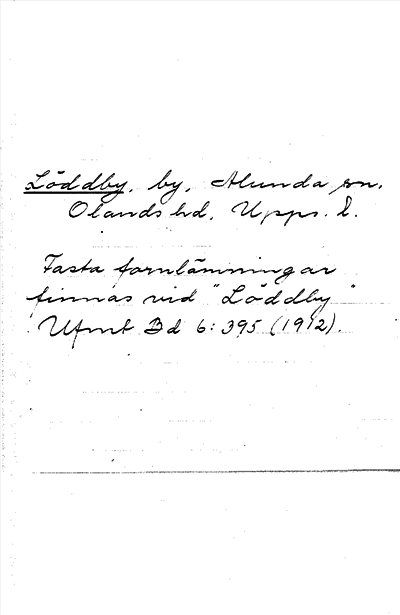 Löddby, by, Alunda sn.
Olands hd, Upps. l.
Fasta fornlämningar
finnas vid "Löddby"
Ufmt Bd 6:395 (1912).